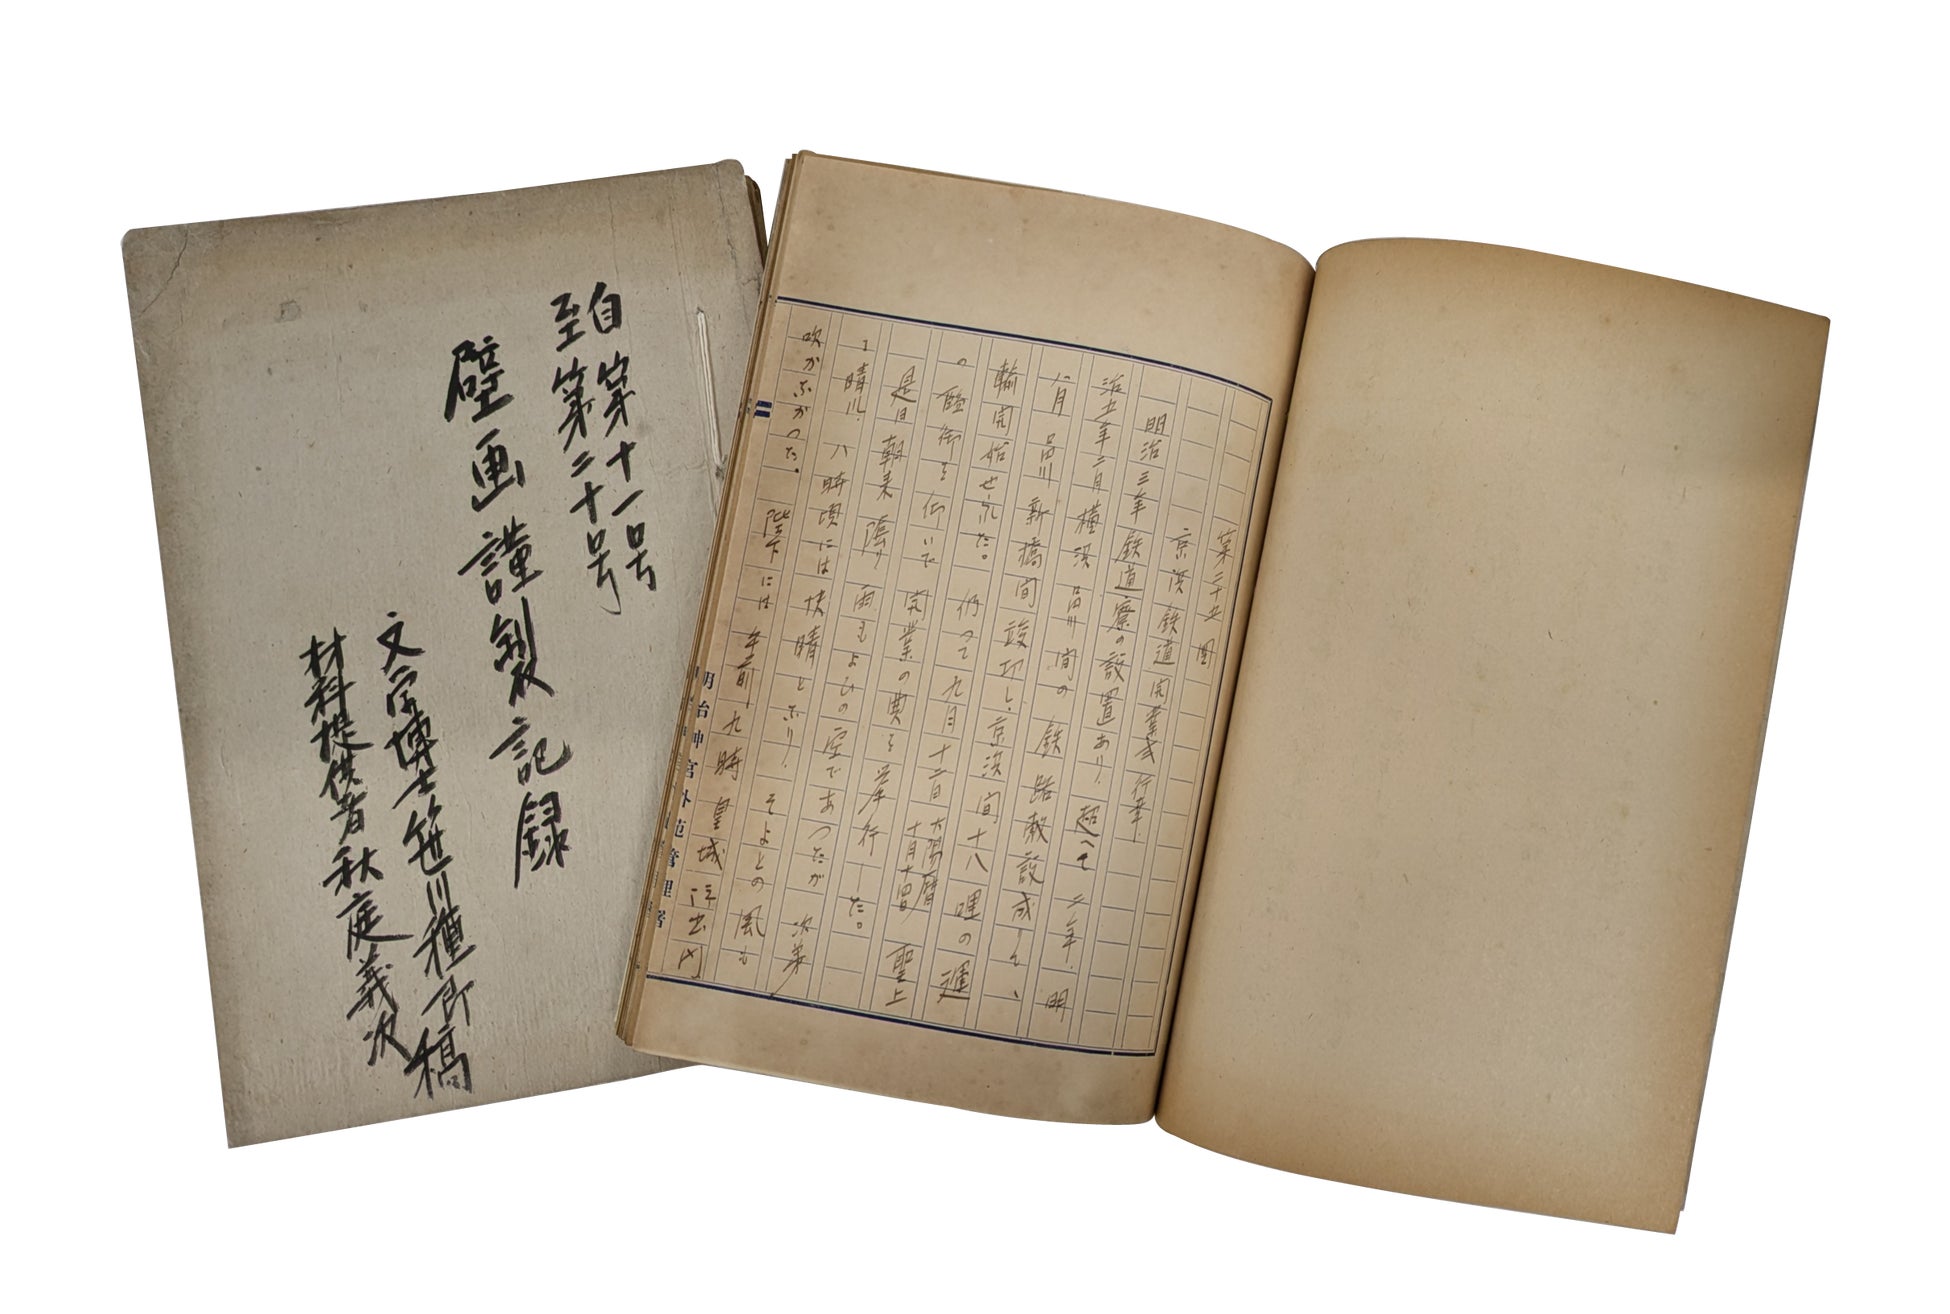 自第十一号
至第二十号
壁画謹製記録
文学博士笹川種郎稿
材料提供者秋庭義次
第二十五図
京浜鉄道開業式行幸
明治三年鉄道寮の設置あり、超へて二年、明
治五年二月横浜品川間の鉄路敷設成りて、
八月品川新橋間竣功し、京浜間十八哩の運
輸開始せられた。仍つて九月十二日太陽暦十月十四日聖上
の臨御を仰いで開業の典を挙行した。
是日朝来陰り雨もよひの空であつたが次第
に晴れ、八時頃には快晴となり、そよとの風も
吹かなかつた。陛下には午前九時皇城
明治神宮外苑管理署